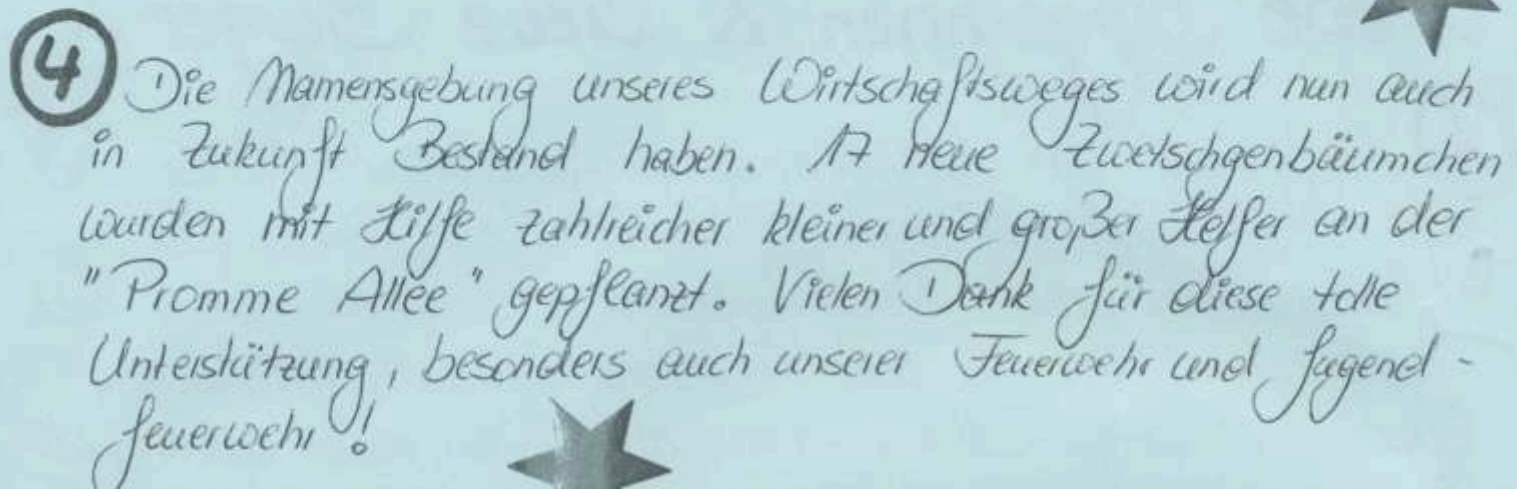 4 Die Namensgebung unseres Wirtschaftsweges wird nun auch
in Zukunft Bestand haben. 17 neue Zwetschgenbäumchen
wurden mit Hilfe zahlreicher kleiner und großer Helfer an der
"Promme Allee" gepflanzt. Vielen Dank für diese tolle
Unterstützung, besonders auch unserer Feuerwehr und Jugend-
feuerwehr!